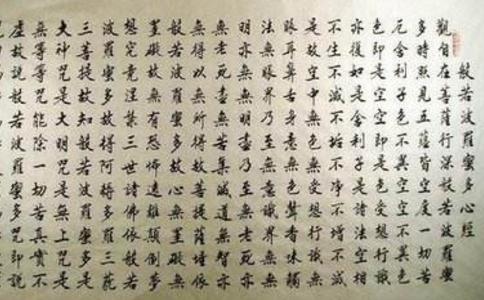 般若波羅蜜多心經
觀自在菩薩行深般若波羅蜜
多時照見五蘊皆空度一切苦
厄舍利子色不異空空不異色
色即是空空即是色受想行識
亦復如是舍利子是諸法空相
不生不滅不垢不淨不增不減
是故空中無色無受想行識無
眼耳鼻舌身意無色聲香味觸
法無眼界乃至無意識界無無
明亦無無明盡乃至無老死亦
無老死盡無苦集滅道無智亦
無得以無所得故菩提薩埵依
般若波羅蜜多故心無罣礙無
罣礙故無有恐怖遠離顛倒夢
想究竟涅槃三世諸佛依般若
波羅蜜多故得阿耨多羅三藐
三菩提故知般若波羅蜜多是
大神咒是大明咒是無上咒是
無等等咒能除一切苦真實不
虛故說般若波羅蜜多咒即說